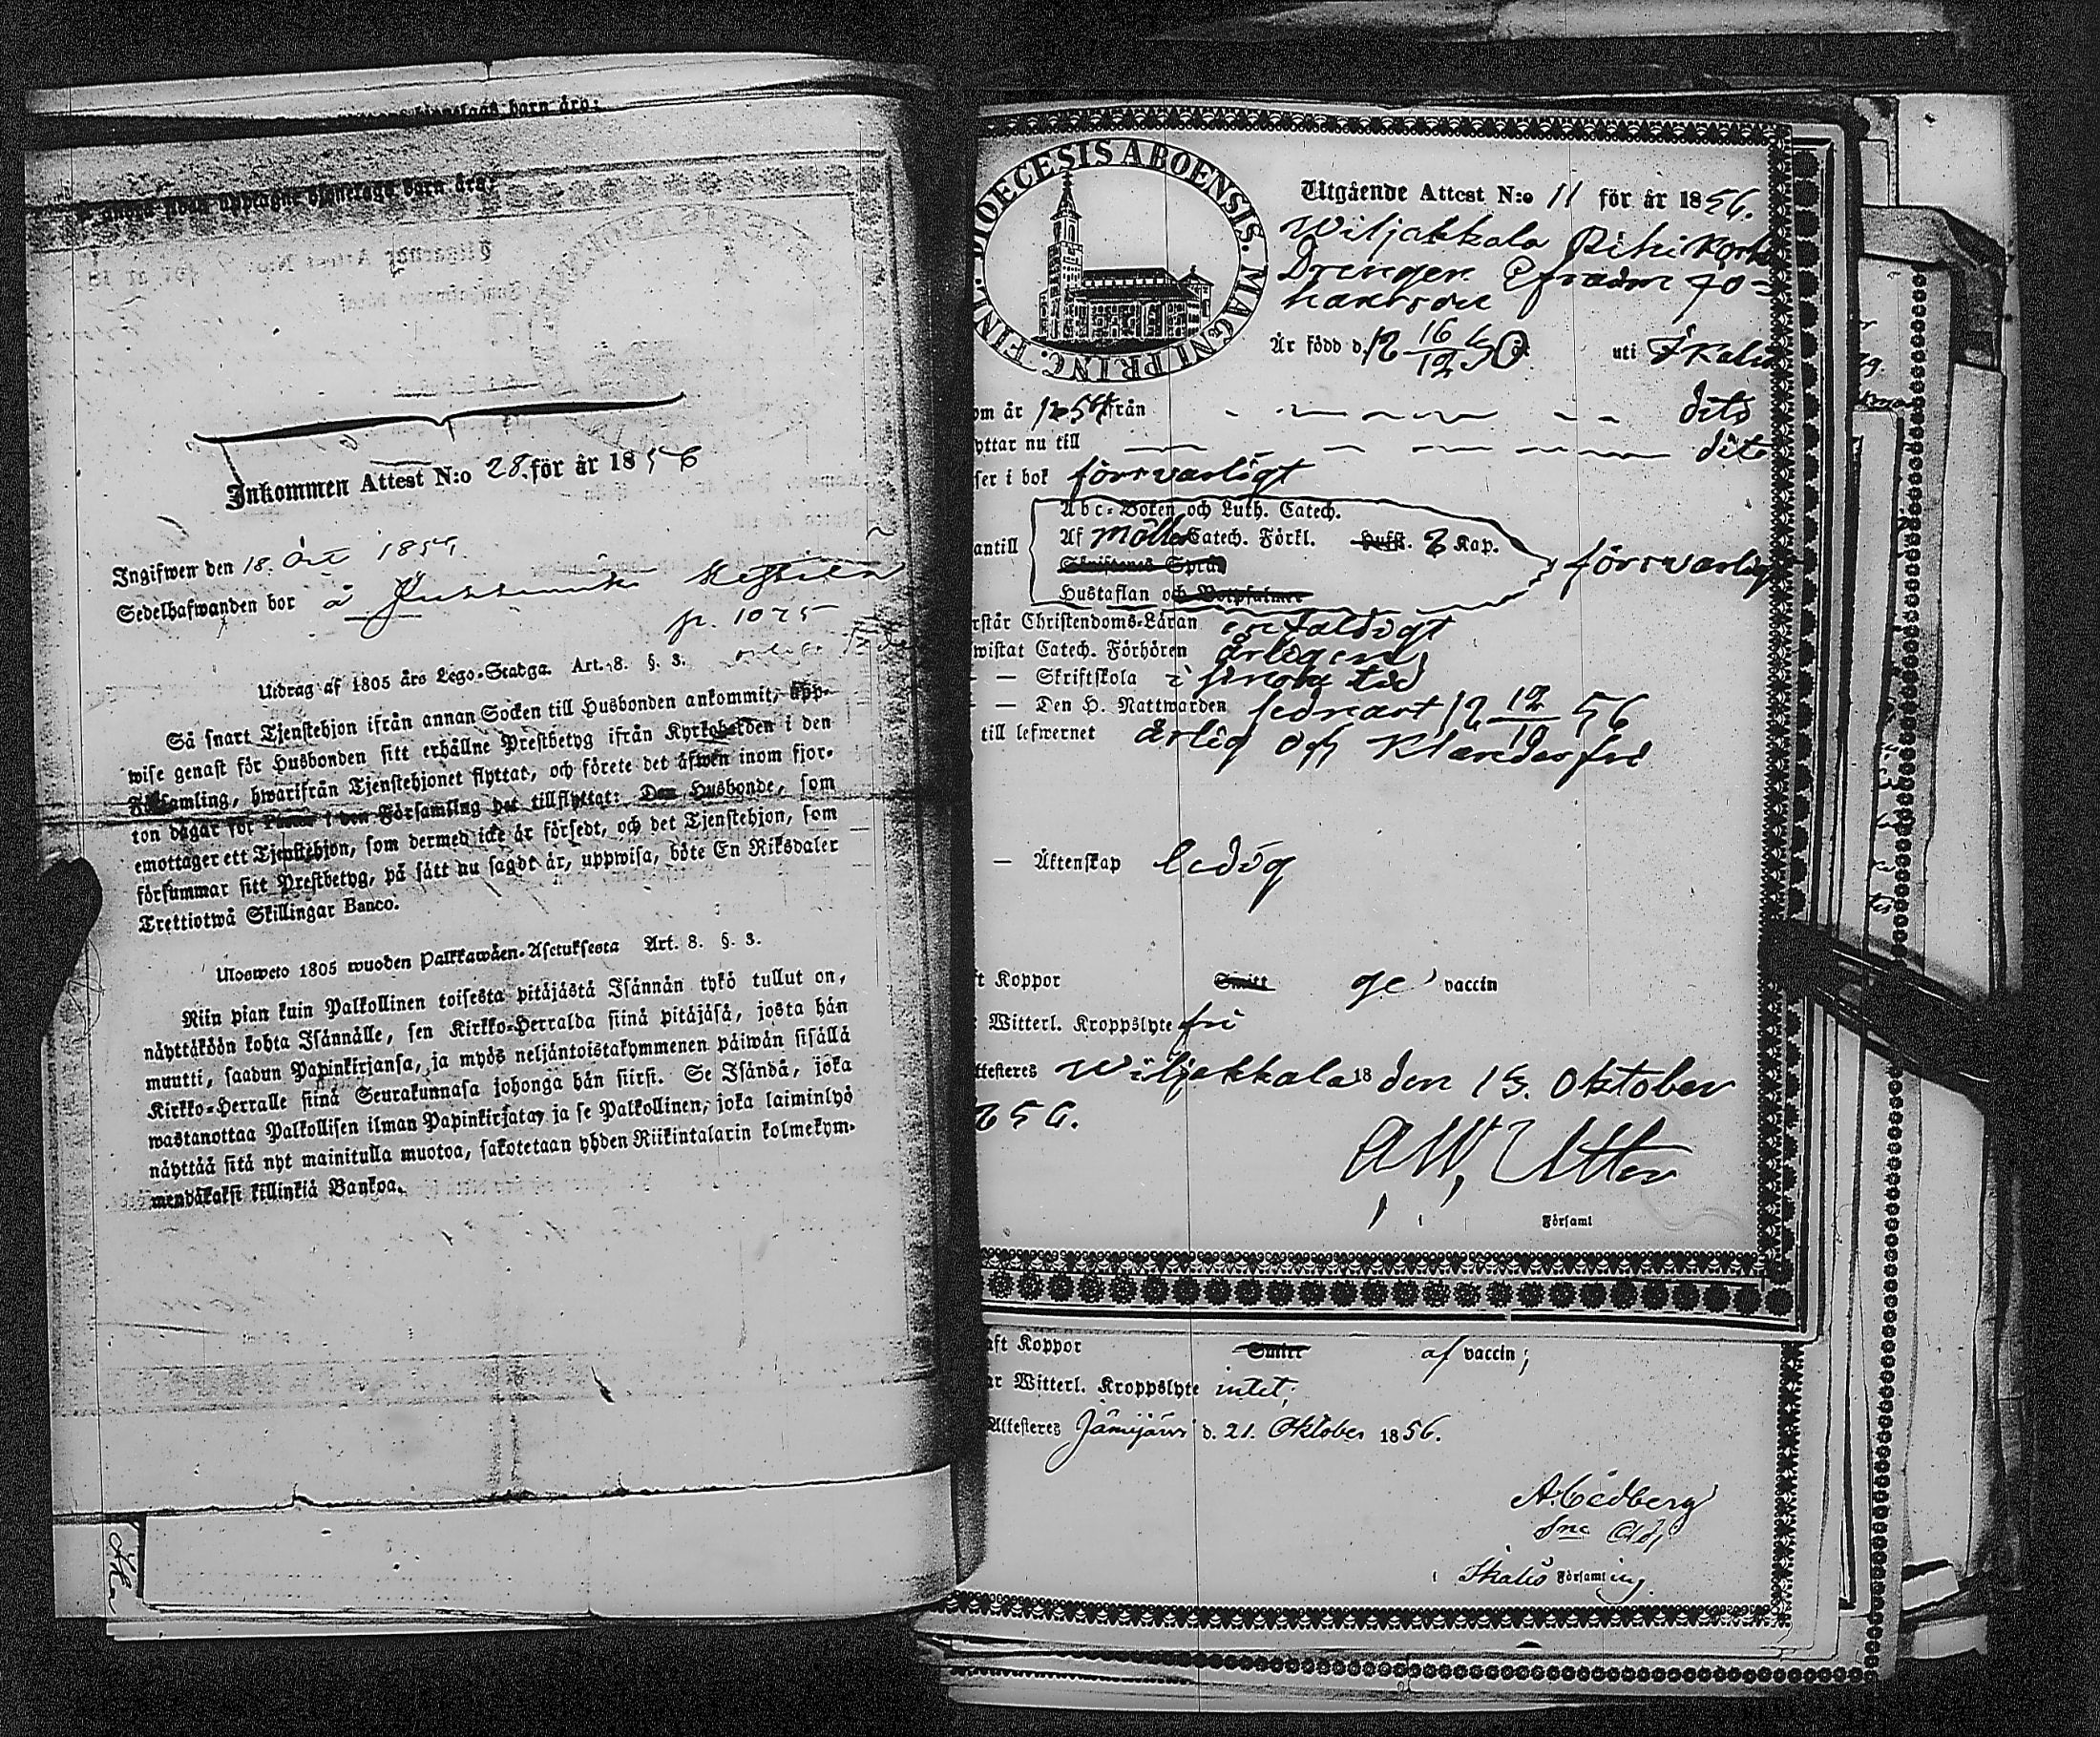 Inkommen Attest N:o 28. för år 1856
Ingifwen den 18. Oct 1856
Sedelhafwanden bor å
p. 1075
Utdrag af 1805 års Lego-Stadga. Art. 8. §. 3.
Så snart Tjenstehjon ifrån annan Socken till Husbonden ankommit, upp-
wise genast för Husbonden sitt erhållne Prestbetyg ifrån Kyrkoherden i den
Församling, hwarifrån Tjenstehjonet flyttat, och förete det äfwen inom fjor-
ton dagar för i den Församling det tillflyttat: Den Husbonde, som
emottager ett Tjenstehjon, som dermed icke är försedt, och det Tjenstehjon, som
försummar sitt Prestbetyg, på sätt nu sagdt är, uppwisa, böte En Riksdaler
Trettiotwå Skillingar Banco.
Ulosweto 1805 wuoden Palkkawäen-Asetuksesta Art. 8. §. 3.
Niin pian kuin Palkollinen toisesta pitäjästä Isännän tykö tullut on,
näyttäköön kohta Isännälle, sen Kirkko-Herralda siinä pitäjäsä, josta hän
muutti, saadun Papinkirjansa, ja myös neljäntoistakymmenen päiwän sisällä
Kirkko-Herralle siinä Seurakunnasa johonga hän siirsi. Se Isändä, joka
wastanottaa Palkollisen ilman Papinkirjatay ja se Palkollinen, joka laiminlyö
näyttää sitä nyt mainitulla muotoa, sakotetaan yhden Riikintalarin kolmekym-
mendäkaksi killinkiä Bankoa.
DIOECESIS ABOENSIS. MAGNI PRINC. FINL.
Utgående Attest N:o 11 för år 1856.
Wiljakkala
Drengen Efraim Jo=
hansson
Är född d. 18 16/12 30. uti Ikalis
om år 1854 från dito
yttar nu till dito
ser i bok försvarligt
Abc-Boken och Luth. Catech.
antill Af Möllers Catech. Förkl. Hufst. 2 Kap. försvarligt
Skriftenes Språk
Hustaflan och Botpsalmer
rstår Christendoms-Läran enfaldigt
wistat Catech. Förhören årligen
— — Skriftskola i sinom tid
— — Den H. Nattwarden sednast 18 12/10 56
till lefwernet ärlig och klanderfri
— Äktenskap ledig
ft Koppor Smitt ge vaccin
Witterl. Kroppslyte fri
ttesteres Wiljakkala 18 den 13. Oktober
856.
AW, Utter
i Församl
aft Koppor Smitt af vaccin;
ar Witterl. Kroppslyte intet;
Attesteres Jämijärvi d. 21. Oktober 1856.
A. Cedberg
Sne Adj
i Ikalis Församling.